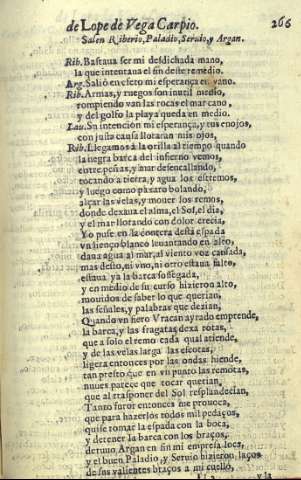 de Lope de Vega Carpio. 266
Salen Riberio, Paladio, Serulo, y Argan.
Rib. Bastaua ser mi desdichada mano,
la que intentaua el fin deste remedio.
Arg. Salió en efeto mi esperança en vano.
Rib. Armas, y ruegos son inutil medio,
rompiendo van las rocas el mar cano,
y del golfo la playa queda en medio.
Lau. Su intencion mi esperança, y tus enojos,
con justa causa lloraran mis ojos,
Rib. Llegamos à la orilla al tiempo quando
la negra barca del infierno vemos,
entre peñas, y mar desencallando,
tocando a tierra, y agua los estremos,
y luego como pàxaro bolando,
alçar las velas, y mouer los remos,
donde dexaua el alma, el Sol, el dia,
y el mar llorando con dolor crecia,
Yo puse en la contera desta espada
vn lienço blanco leuantando en alto,
daua agua al mar, al viento voz cansada,
mas desto, ni vno, ni otro estaua falto,
estaua ya la barca sossegada,
y en medio de su curso hizieron alto,
mouidos de saber lo que querian,
las señales, y palabras que dezian,
Quando vn fiero Vracan ayrado emprende,
la barca, y las fragatas dexa rotas,
que a solo el remo cada qual atiende,
y de las velas larga las escotas,
ligera entonces por las ondas hiende,
tan presto que en vn punto las remotas,
nuues parece que tocar querian,
que al trasponer del Sol resplandecian,
Tanto furor entonces me prouoca,
que para hazerlos todos mil pedaços,
quise tomar la espada con la boca,
y detener la barca con los braços,
detuuo Argan en fin mi empresa loca,
y el buen Paladio, y Seruio hizieron, laços
de sus valientes braços a mi cuello,